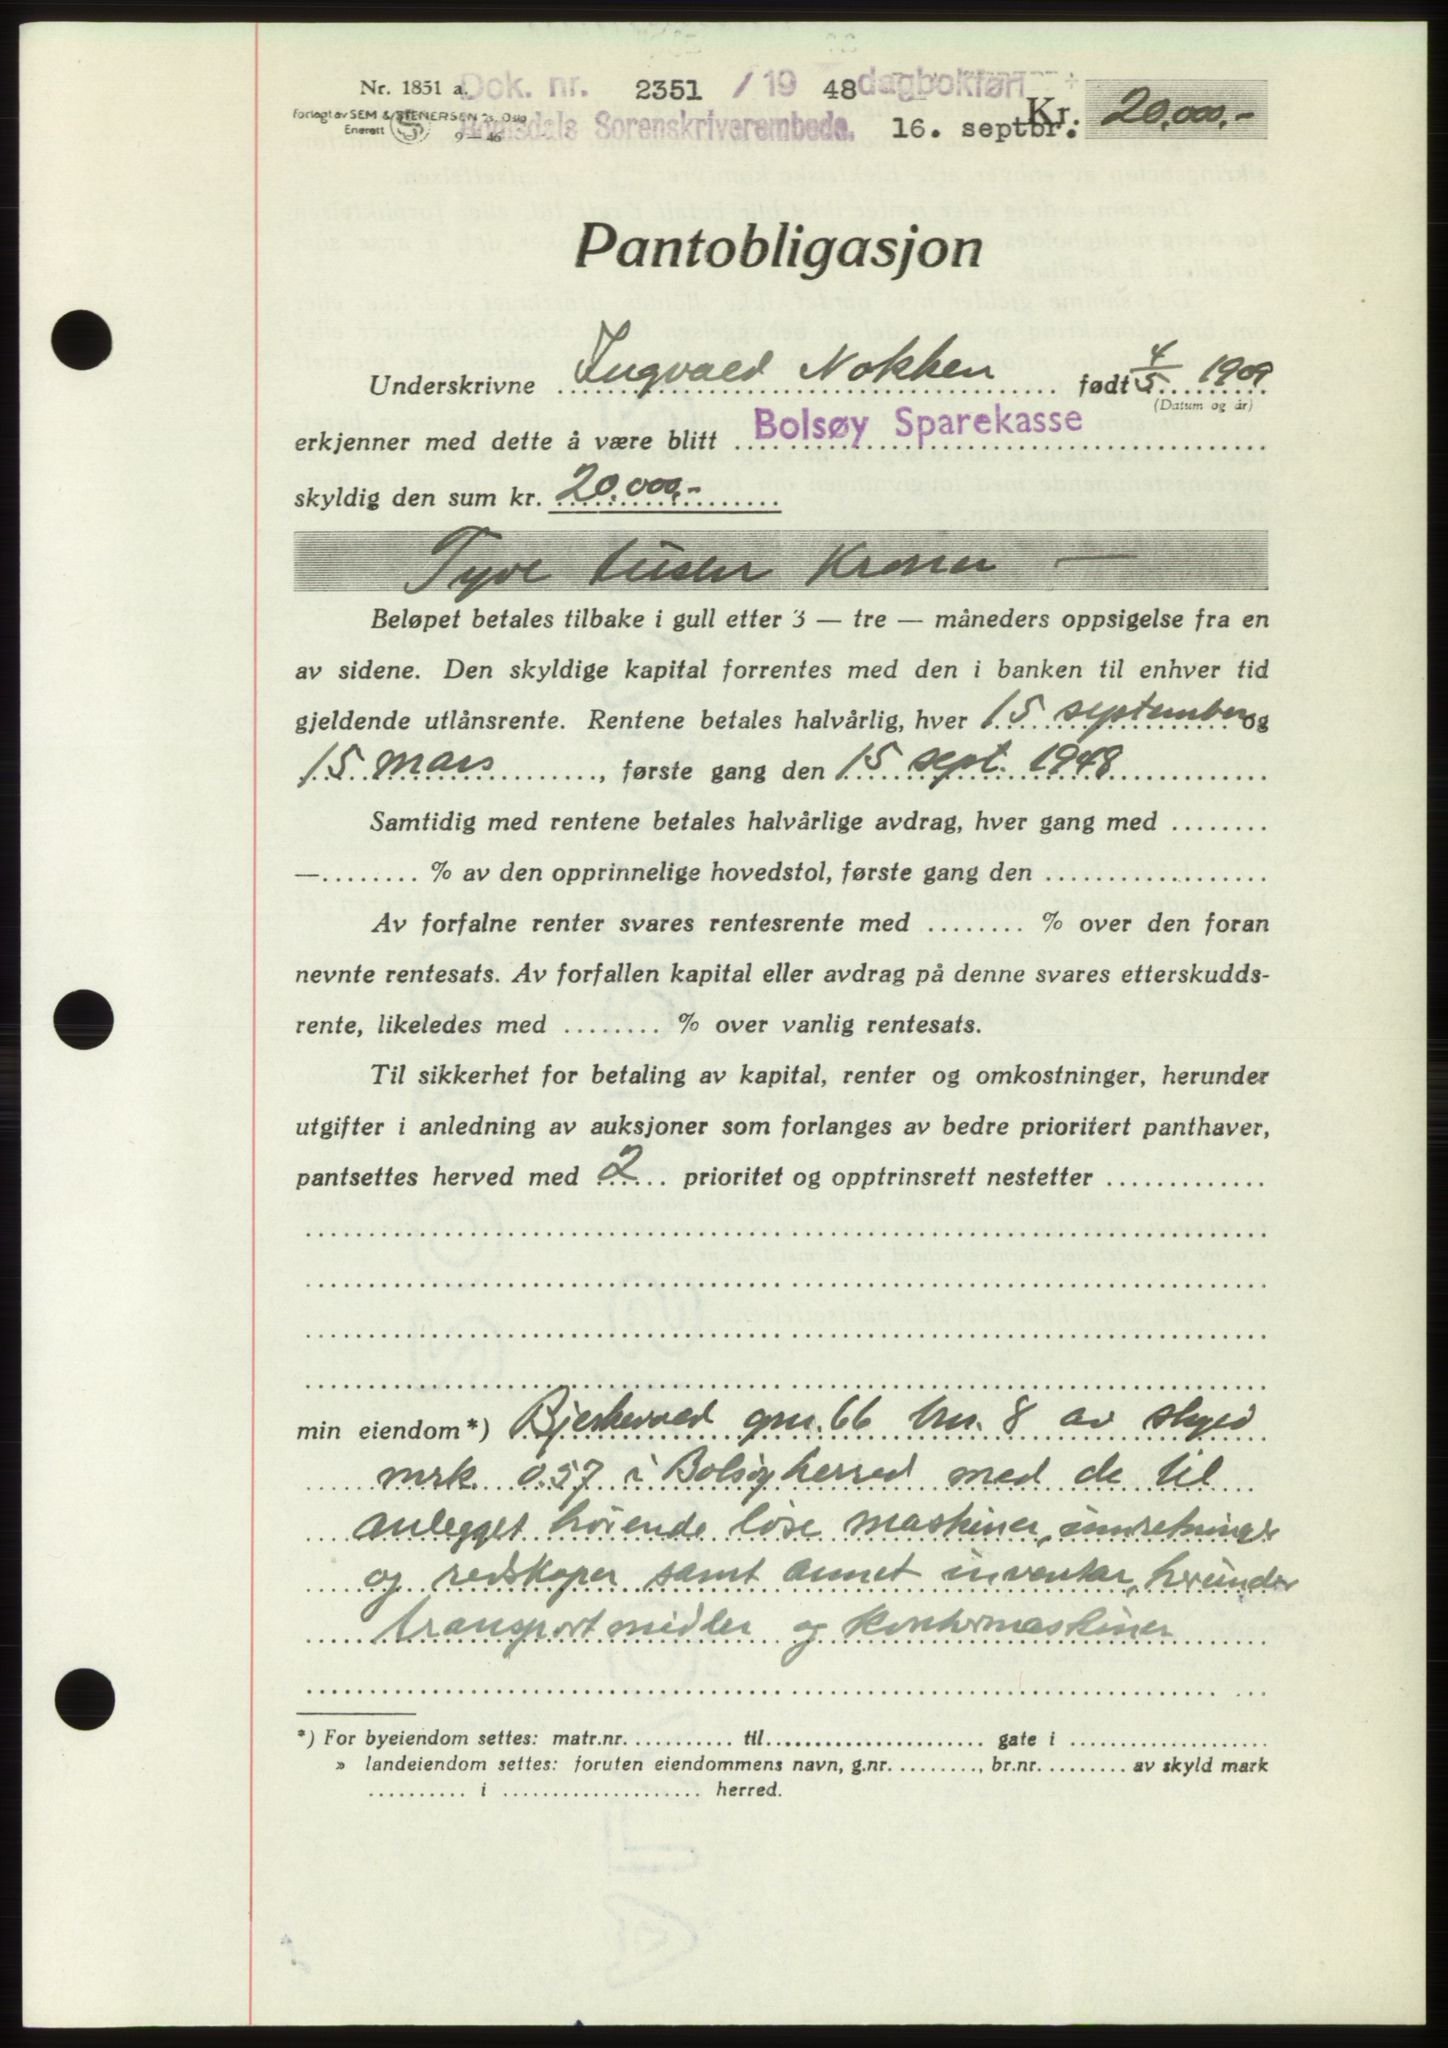 Nr. 1851 a.
Dok. nr. 2351 / 19 48 dagbokført
Forlagt av SEM & STENERSEN A/S. Oslo
Enerett 9—46
Romsdals Sorenskriverembede. 16. septbr.
Kr. 20.000,-
Pantobligasjon
Underskrivne Ingvald Nokken født 4/5 1909
(Datum og år)
erkjenner med dette å være blitt Bolsøy Sparekasse
skyldig den sum kr. 20.000,-
Tyve tusen Kroner —
Beløpet betales tilbake i gull etter 3 — tre — måneders oppsigelse fra en
av sidene. Den skyldige kapital forrentes med den i banken til enhver tid
gjeldende utlånsrente. Rentene betales halvårlig, hver 15 september og
15 mars, første gang den 15 sept. 1948
Samtidig med rentene betales halvårlige avdrag, hver gang med ........
—........ % av den opprinnelige hovedstol, første gang den ...................
Av forfalne renter svares rentesrente med ........ % over den foran
nevnte rentesats. Av forfallen kapital eller avdrag på denne svares etterskudds-
rente, likeledes med ........ % over vanlig rentesats.
Til sikkerhet for betaling av kapital, renter og omkostninger, herunder
utgifter i anledning av auksjoner som forlanges av bedre prioritert panthaver,
pantsettes herved med 2 prioritet og opptrinsrett nestetter ..............
min eiendom*) Bjerkevold gnr. 66 bnr. 8 av skyld
mrk. 0.57 i Bolsøy herred med de til
anlegget hørende løse maskiner, innretninger
og redskaper samt annet inventar, herunder
transportmidler og kontormaskiner
*) For byeiendom settes: matr.nr. ........... til...................... gate i ....................
» landeiendom settes: foruten eiendommens navn, g.nr. ........., br.nr. ......... av skyld mark
.......... i .................... herred.